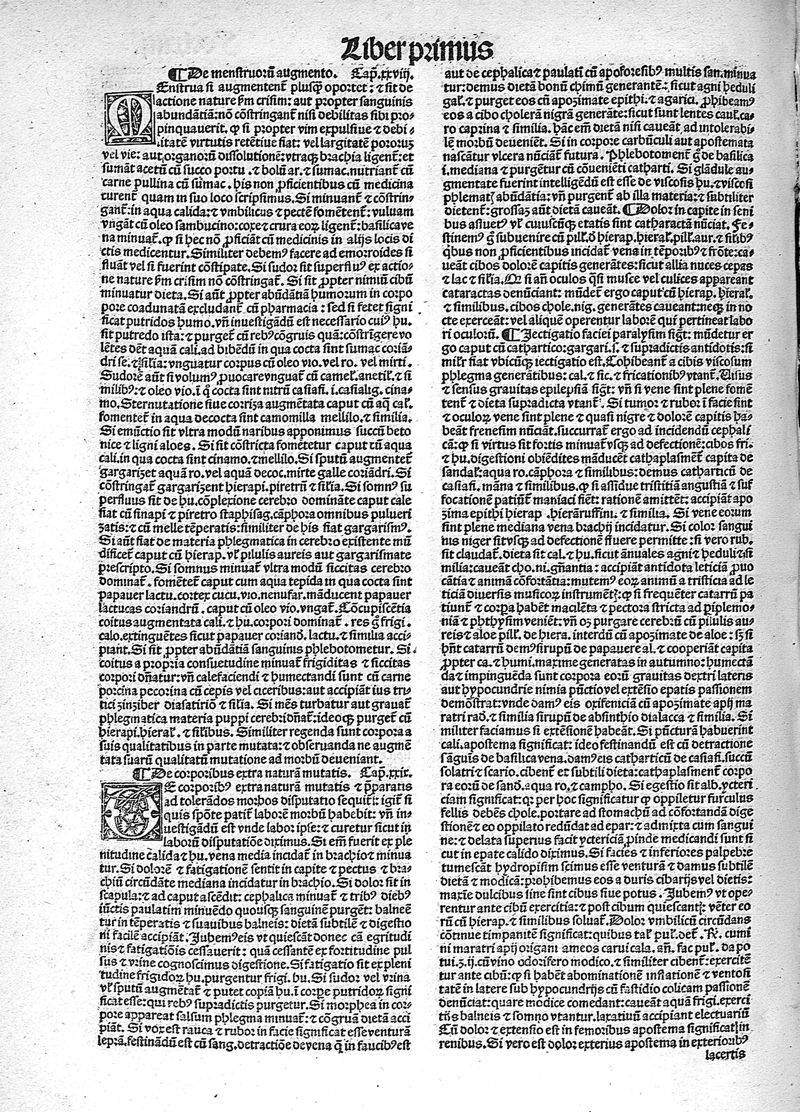 Liber primus
¶ De menstruorũ augmento. Cap. xxviij.
MEnstrua si augmentent̃ plusq̃ oportet: ⁊ sit de
actione nature ẜm crisim: aut propter sanguinis
abundãtiã: nõ cõstringant̃ nisi debilitas sibi pro-
pinquauerit. ꝙ si propter vim expulsiuẽ ⁊ debi-
litatẽ virtutis retẽtiue fiat: vel largitatẽ pororuz
vel vie: aut organorũ dissolutionẽ: vtraqꝫ brachia ligent̃: et
sumãt acetũ cũ succo portu. ⁊ bolũ ar. ⁊ sumac. nutriant̃ cũ
carne pullina cũ sumac. his non proficientibus cũ medicina
curent̃ quam in suo loco scripsimus. Si minuant̃ ⁊ cõstrin-
gant̃: in aqua calida: ⁊ vmbilicus ⁊ pectẽ fomẽtent̃: vuluam
vngãt cũ oleo sambucino: cope ⁊ crura eoꝝ ligent̃: basilica ve
na minuat̃. ꝙ si hec nõ ꝓficiãt cũ medicinis in alijs locis di
ctis medicentur. Similiter debemꝰ facere ad emorroides si
fluãt vel si fuerint cõstipate. Si sudor sit superfluꝰ ex actio-
ne nature ẜm crisim nõ cõstringat̃. Si sit ꝓpter nimiũ cibũ
minuatur dieta. Si aũt ꝓpter abũdãtiã humorum in corpo
pore coadunatã excludant̃ cũ pharmacia: sed si fetet signi
ficat putridos humo. vñ inuestigãdũ est necessario cuiꝰ hu.
sit putredo ista: ⁊ purget̃ cũ rebꝰ cõgruis quã: cõstrigere vo
lẽtes dẽt aquã cali. ad bibẽdũ in qua cocta sint sumac coriã-
dri se. ⁊ sĩlia: vnguatur corpus cũ oleo vio. vel ro. vel mirti.
Sudorẽ aũt si volumꝰ ꝓuocare vnguat̃ cũ camel. aneti. ⁊ si
milibꝰ: ⁊ oleo vio. ĩ q̃ cocta sint nutrũ casiafi. i. casialig. cina-
mo. Sternutatione siue corriza augmẽtata caput cũ aq̃ cal.
fomentet̃ in aqua decocta sint camomilla mellilo. ⁊ similia.
Si emũctio sit vltra modũ naribus apponimus succũ beto
nice ⁊ ligni aloes. Si sit cõstricta fometetur caput cũ aqua
cali. in qua cocta sint cinamo. ⁊ mellilo. Si sputũ augmentet̃
gargarizet aquã ro. vel aquã decoc. mirte galle coriãdri. Si
cõstringat̃ gargarizent hierapi. piretrũ ⁊ sĩlia. Si somnꝰ su
perfluus sit de hu. cõplexione cerebro dominãte caput cale
fiat cũ sinapi ⁊ piretro staphisag. cãphora omnibus pulueri
zatis: ⁊ cũ melle tẽperatis: similiter de his fiat gargarismꝰ.
Si aũt fiat de materia phlegmatica in cerebro existente mũ
dificet̃ caput cũ hierap. vel pilulis aureis aut gargarismate
prescripto. Si somnus minuat̃ vltra modũ siccitas cerebro
dominat̃. fomẽtet̃ caput cum aqua tepida in qua cocta sint
papauer lactu. cortex cucu. vio. nenufar. mãducent papauer
lactucas coriandrũ. caput cũ oleo vio. vngat̃. Cõcupiscẽtia
coitus augmentata cali. ⁊ hu. corpori dominat̃. res q̃ frigi.
calo. extinguẽtes sicut papauer coriand. lactu. ⁊ similia acci-
piant. Si sit ꝓpter abũdãtiã sanguinis phlebotometur. Si
coitus a propria consuetudine minuat̃ frigiditas ⁊ siccitas
corpori dñatur: vñ calefaciendi ⁊ humectandi sunt cũ carne
porcina pecorina cũ cepis vel ciceribus: aut accipiãt ius tri-
tici zinziber diasatiriõ ⁊ silia. Si mẽs turbatur aut grauat̃
phlegmatica materia puppi cerebri dñat̃: ideoqꝫ purget̃ cũ
hierapi. hieral. ⁊ similibus. Similiter regenda sunt corpora a
suis qualitatibus in parte mutata: ⁊ obseruanda ne augmẽ
tata suarũ qualitatũ mutatione ad morbũ deueniant.
¶ De corporibus extra naturã mutatis. Cap. xxix.
DE corporibꝰ extra naturã mutatis ⁊ p̃paratis
ad tolerãdos morbos disputatio sequit̃: igit̃ si
quis spõte patit̃ laborẽ morbũ habebit: vñ in-
uestigãdũ est vnde labor ipse: ⁊ curetur sicut in
laborũ disputatiõe diximus. Si em̃ fuerit ex ple
nitudine calida ⁊ hu. vena media incidat̃ in brachio ⁊ minua
tur. Si dolorẽ ⁊ fatigationẽ sentit in capite ⁊ pectus ⁊ bra-
chiũ circũdãte mediana incidatur in brachio. Si dolor sit in
scapula: ⁊ ad caput ascẽdit: cephalica minuat̃ ⁊ tribꝰ diebꝰ
iũctis paulatim minuẽdo quousqꝫ sanguinẽ purget̃: balneẽ
tur in tẽperatis ⁊ suauibus balneis: dietã subtilẽ ⁊ digestio
ni facilẽ accipiãt. Iubemꝰ eis vt quiescãt donec cã egritudi
nis ⁊ fatigatiõis cessauerit: quã cessantẽ ex fortitudine pul
sus ⁊ vrine cognoscimus digestione. Si fatigatio sit ex pleni
tudine frigidoꝝ hu. purgentur frigi. hu. Si sudor vel vrina
vel sputũ augmẽtat̃ ⁊ putet copiã hu. ĩ corpe putridoꝝ signi
ficat esse: qui rebꝰ supradictis purgetur. Si morphea in cor-
pore appareat salsum phlegma minuat̃: ⁊ cõgruã dietã acci
piãt. Si vox est rauca ⁊ rubor in facie significat esse venturã
leprã. festinãdũ est cũ sang. detractiõe de vena q̃ in faucibꝰ est
aut de cephalica ⁊ paulati cũ apoforesibꝰ multis san. minua
tur: demus dietã bonũ chimũ generantẽ: sicut agni heduli
gal. ⁊ purget eos cũ apozimate epithi. ⁊ agarici. ꝓhibeamꝰ
eos a cibo cholerã nigrã generãte: sicut sunt lentes caul. ca-
ro caprina ⁊ similia. hãc em̃ dietã nisi caueãt ad intolerabi-
lẽ morbũ deueniẽt. Si in corpore carbũculi aut apostemata
nascãtur vlcera nũciãt futura. Phlebotoment̃ g̃ de basilica
i. mediana ⁊ purgẽtur cũ cõuenẽti catharti. Si glãdule au-
gmentate fuerint intelligẽdũ est esse de viscosis hu. ⁊ viscosi
phlematꝭ abũdãtia: vñ purgent̃ ab illa materia: ⁊ subtiliter
dietent̃: grossaꝫ aũt dietã caueãt. ¶ Dolor in capite in seni
bus assuetꝰ vel cuiuscũqꝫ etatis sint catharactã nũciat. Fe-
stinemꝰ g̃ subuenire cũ pill'. d̃ hierap. hieral. pill'. aur. ⁊ silibꝰ
q̃bus non proficientibus incidat̃ vena in tẽporibꝰ ⁊ frõte: ca-
ueãt cibos dolorẽ capitis generãtes: sicut allia nuces cepas
⁊ lac ⁊ silia. Qr̃ si añ oculos q̃si musce vel culices appareant
cataractas denũciant: mũdet̃ ergo caput cũ hierap. hieral.
⁊ similibus. cibos chole. nig. generãtes caueant: neqꝫ in no
cte exerceãt: vel aliquẽ operentur laborẽ qui pertineat labo
ri oculorũ. ¶ Iectigatio faciei paralysim sigt̃: mũdetur er
go caput cũ cathartico: gargari. s̃. ⁊ supradictis antidotis: si
mil̃r fiat vbicũqꝫ iectigatio est. Cohibeant̃ a cibis viscosum
phlegma generãtibus: cal. ⁊ sic. ⁊ fricationibꝰ vtant̃. Visus
⁊ sensus grauitas epilepsiã sigt̃: vñ si vene sint plene fomẽ
tent̃ ⁊ dieta supradicta vtant̃. Si tumor ⁊ rubor ĩ facie sint
⁊ oculoꝝ vene sint plene ⁊ quasi nigre ⁊ dolorẽ capitis ha-
beãt frenesim nũciãt. succurrat̃ ergo ad incidendũ cephali
cã: ꝙ si virtus sit fortis minuat̃ vsqꝫ ad defectionẽ: cibos fri.
⁊ hu. digestioni obiẽdites mãducẽt cathaplasment̃ capita de
sandal'. aqua ro. cãphora ⁊ similibus: demus catharticũ de
casiafi. mãna ⁊ similibus. ꝙ si assidue tristitiã angustiã ⁊ suf
focationẽ patiunt̃ maniaci fiẽt: rationẽ amittẽt: accipiãt apo
zima epithi hierap. hieraruffini. ⁊ similia. Si vene eorum
sint plene mediana vena brachij incidatur. Si color sangui
nis niger sit vsqꝫ ad defectionẽ fluere permitte: si vero rub.
sit claudat̃. dieta sit cal. ⁊ hu. sicut ãnuales agni ⁊ heduli ⁊ si
milia: caueãt cho. ni. gñantia: accipiãt antidota leticiã ꝓuo
cãtia ⁊ animã cõfortãtia: mutemꝰ eoꝝ animũ a tristicia ad le
ticiã diuersis musicoꝝ instrumẽtꝭ: ꝙ si frequẽter catarrũ pa
tiunt̃ ⁊ corpa habẽt macilẽta ⁊ pectora stricta ad piplemo-
niã ⁊ phthysim veniẽt: vñ oꝫ purgare cerebrũ cũ pilulis au-
reis ⁊ aloe pill'. de hiera. interdũ cũ apozimate de aloe: sꝫ si
hñt catarrũ demꝰ sirupũ de papauere al. ⁊ cooperiãt capita
ꝓpter ca. ⁊ humi. maxime generatas in autumno: humectã
da ⁊ impinguẽda sunt corpora eorũ grauitas dextri lateris
aut hypocundrie nimia pũctio vel extẽsio epatis passionem
demõstrat: vnde damꝰ eis oxifeniciã cũ apozimate apij ma
ratri rad. ⁊ similia sirupũ de absinthio dialacca ⁊ similia. Si
militer faciamus si extẽsionẽ habeãt. Si pũcturã habuerint
cali. apostema significat: ideo festinandũ est cũ detractione
sãguis de basilica vena. damꝰ eis catharticũ de casiafi. succũ
solatri ⁊ scario. cibent̃ et subtili dieta: cathaplasment̃ corpo
ra eorũ de sand. aqua ro. ⁊ campho. Si egestio sit alb. ycteri
ciam significat: qꝛ per hoc significatur ꝙ oppiletur furculus
fellis debẽs chole. portare ad stomachũ ad cõfortãdã dige
stionẽ: ⁊ eo oppilato redũdat ad epar: ⁊ admixta cum sangui
ne: ⁊ delata superius facit ycterciã proinde medicandi sunt si
cut in epate calido diximus. Si facies ⁊ inferiores palpebre
tumescãt hydropisim scimus esse venturã ⁊ damus subtilẽ
dietã ⁊ modicã: prohibemus eos a duris cibarijs vel dietis:
maxime dulcibus sine sint cibus siue potus. Iubemꝰ vt ope-
rentur ante cibũ exercitia: ⁊ post cibum quiescant̃: vẽter eo
rũ cũ hierap. ⁊ similibus soluat̃. Dolor vmbilicũ circũdans
cõtinue timpanitẽ significat: quibus tal' pul. det̃. ℞. cumi
ni maratri apij origani ameos carui cala. añ. fac pul. da po
tui. ʒ. ij. cũ vino odorifero modico. ⁊ similiter cibent̃: exercitẽ
tur ante cibũ: ꝙ si habẽt abominationẽ inflationẽ ⁊ ventosi
tatẽ in latere sub hypocundrijs cũ fastidio colicam passionẽ
denũciat: quare modice comedant: caueãt aquã frigi. exerci
tijs balneis ⁊ somno vtantur. laxatiuũ accipiant electuariũ
Cũ dolor ⁊ extensio est in femoribus apostema significat̃ in
renibus. Si vero est dolor exterius apostema in exterioribꝰ
lacertis